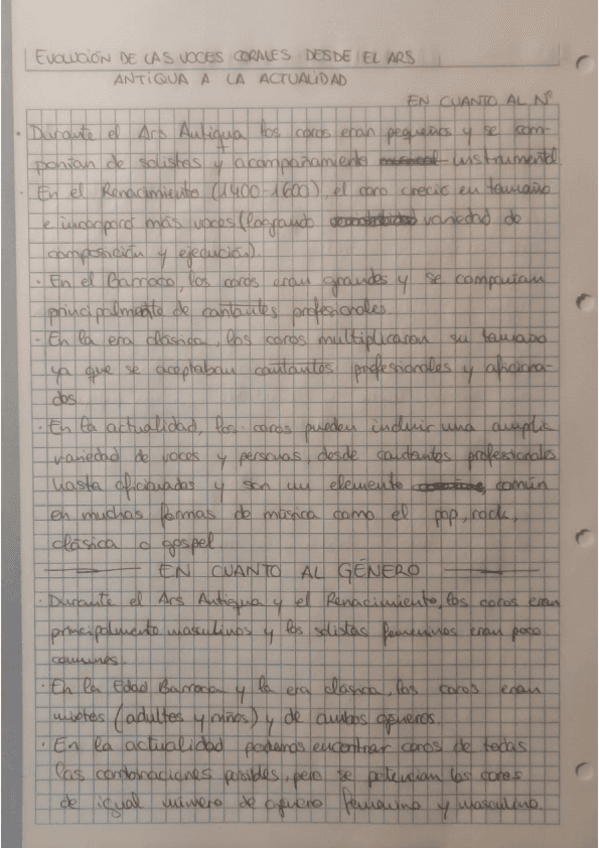 EVOLUCIÓN DE LAS VOCES CORALES DESDE EL ARS
ANTIQUA A LA ACTUALIDAD
EN CUANTO AL Nº
· Durante el Ars Antiqua los coros eran pequeños y se com-
ponían de solistas y acompañamiento instrumental
· En el Renacimiento (1400-1600), el coro creció en tamaño
e incorporó más voces (logrando variedad de
composición y ejecución).
· En el Barroco, los coros eran grandes y se componían
principalmente de cantantes profesionales.
· En la era clásica, los coros multiplicaron su tamaño
ya que se aceptaban cantantes profesionales y aficiona-
dos
· En la actualidad, los coros pueden incluir una amplia
variedad de voces y personas, desde cantantes profesionales
hasta aficionados y son un elemento común
en muchas formas de música como el pop, rock,
clásica o gospel
EN CUANTO AL GÉNERO
· Durante el Ars Antiqua y el Renacimiento, los coros eran
principalmente masculinos y los solistas femeninos eran poco
comunes.
· En la Edad Barroca y la era clásica, los coros eran
mixtos (adultes y niños) y de ambos géneros.
· En la actualidad podemos encontrar coros de todas
las combinaciones posibles, pero se potencian los coros
de igual número de género femenino y masculino.